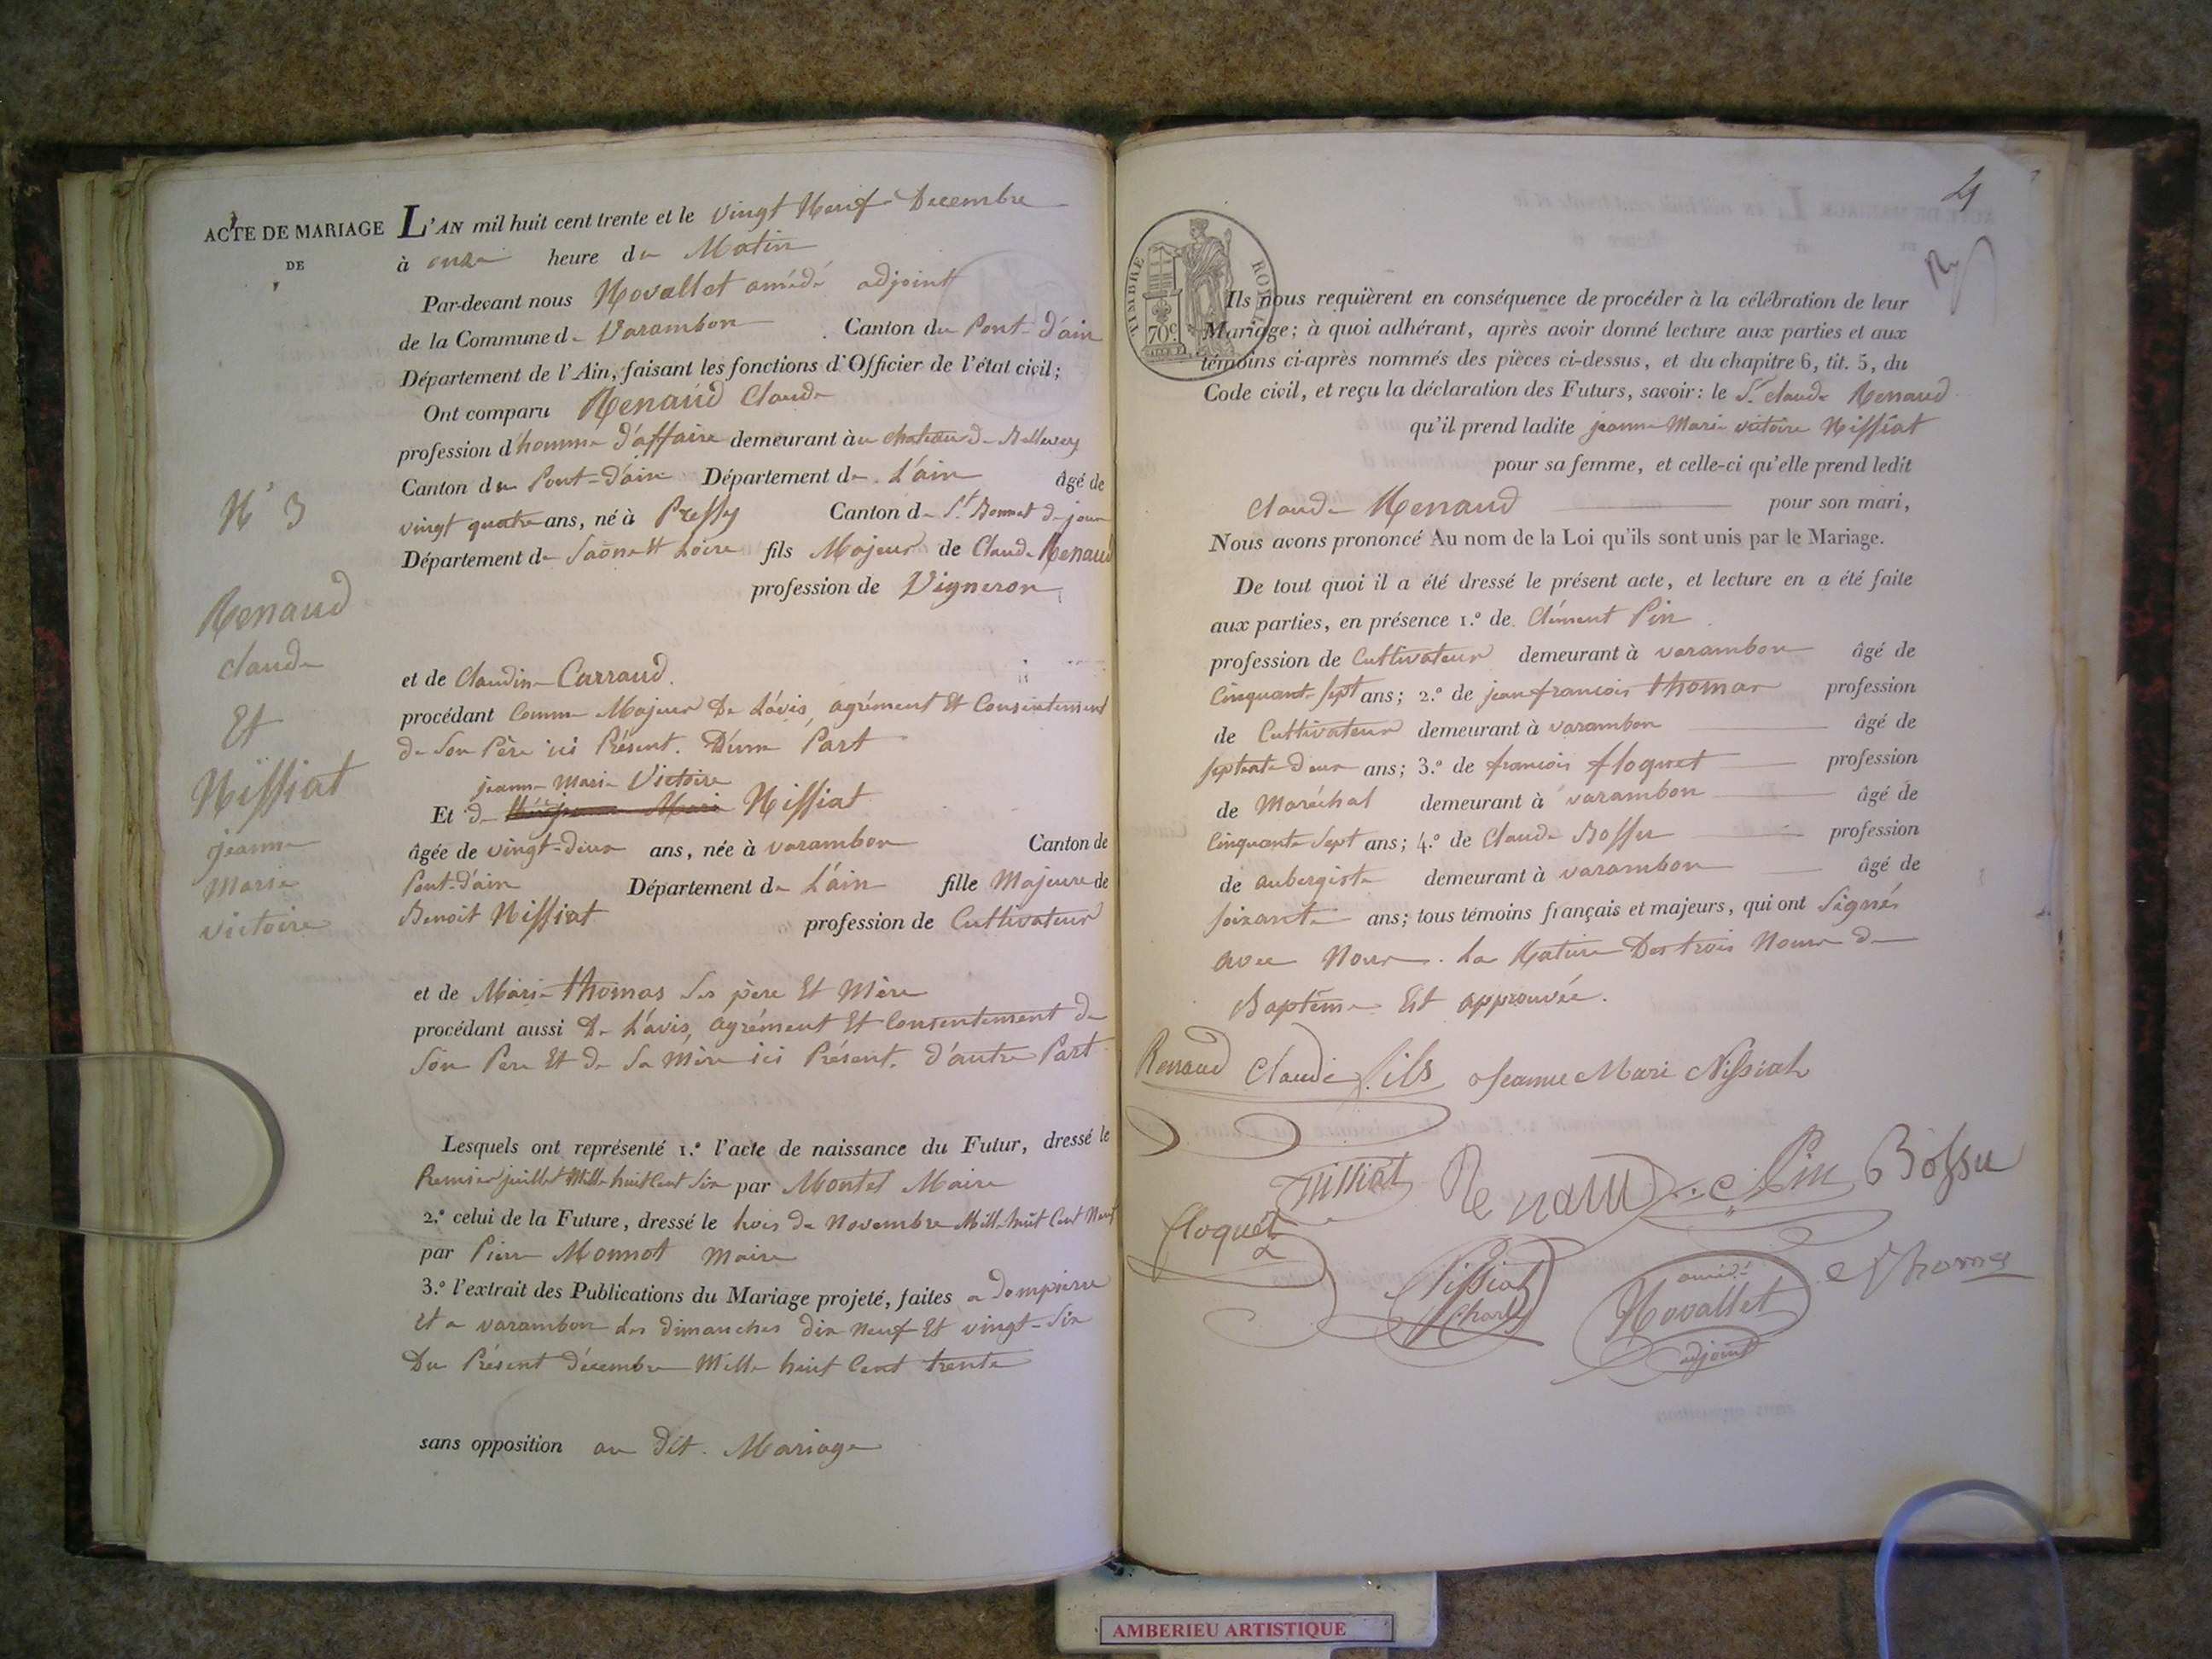 ACTE DE MARIAGE
DE
N° 3
Renaud
Claude
Et
Nissiat
jeanne
Marie
victoire
L'AN mil huit cent trente et le vingt Neuf Decembre
à onze heure du Matin
Par-devant nous Novallet amédé adjoint
de la Commune de Varambon Canton du Pont-d'ain
Département de l'Ain, faisant les fonctions d'Officier de l'état civil;
Ont comparu Renaud Claude
profession d'homme d'affaire demeurant au chateau de
Canton du Pont-d'ain Département de L'ain âgé de
vingt quatre ans, né à Pressy Canton de St. Bonnet de joux
Département de Saône Et Loire fils Majeur de Claude Renaud
profession de Vigneron
et de Claudine Carraud.
procédant Comme Majeur De L'avis, agrément Et Consentement
de Son Père ici Présent. D'une Part
jeanne Marie Victoire
Et de Nissiat
âgée de vingt-deux ans, née à varambon Canton de
Pont-d'ain Département de L'ain fille Majeure de
Benoit Nissiat profession de Cultivateur
et de Marie thomas Ses père Et Mère
procédant aussi De L'avis, agrément Et Consentement de
Son Pere Et de Sa Mère ici Présent. d'autre Part
Lesquels ont représenté 1.° l'acte de naissance du Futur, dressé le
Premier juillet Mille huit Cent Six par Montet Maire
2.° celui de la Future, dressé le trois de Novembre Mille huit Cent Neuf
par Pierre Monnot maire
3.° l'extrait des Publications du Mariage projeté, faites a dompierre
et a varambon les dimanches dix neuf Et vingt-Six
Du Présent décembre Mille huit Cent trente
sans opposition au dit. Mariage
4
TIMBRE ROYAL
70 c.
Ils nous requièrent en conséquence de procéder à la célébration de leur
Mariage; à quoi adhérant, après avoir donné lecture aux parties et aux
témoins ci-après nommés des pièces ci-dessus, et du chapitre 6, tit. 5, du
Code civil, et reçu la déclaration des Futurs, savoir: le Sr. claude Renaud
qu'il prend ladite jeanne Marie victoire Nissiat
pour sa femme, et celle-ci qu'elle prend ledit
claude Renaud pour son mari,
Nous avons prononcé Au nom de la Loi qu'ils sont unis par le Mariage.
De tout quoi il a été dressé le présent acte, et lecture en a été faite
aux parties, en présence 1.° de Clément Pin
profession de Cultivateur demeurant à varambon âgé de
Cinquante Sept ans; 2.° de jean françois thomas profession
de Cultivateur demeurant à varambon âgé de
Septante deux ans; 3.° de françois floquet profession
de Maréchal demeurant à varambon âgé de
Cinquante Sept ans; 4.° de Claude Bossu profession
de aubergiste demeurant à varambon âgé de
Soixante ans; tous témoins français et majeurs, qui ont Signés
avec Nous. La Rature Des trois Noms de
Baptême Est approuvée.
Renaud Claude fils Jeanne Marie Nissiat
Nissiat Renaud Pin Bossu
floquet
Nissiat Charle
amédé Novallet adjoint
Thomas
AMBERIEU ARTISTIQUE